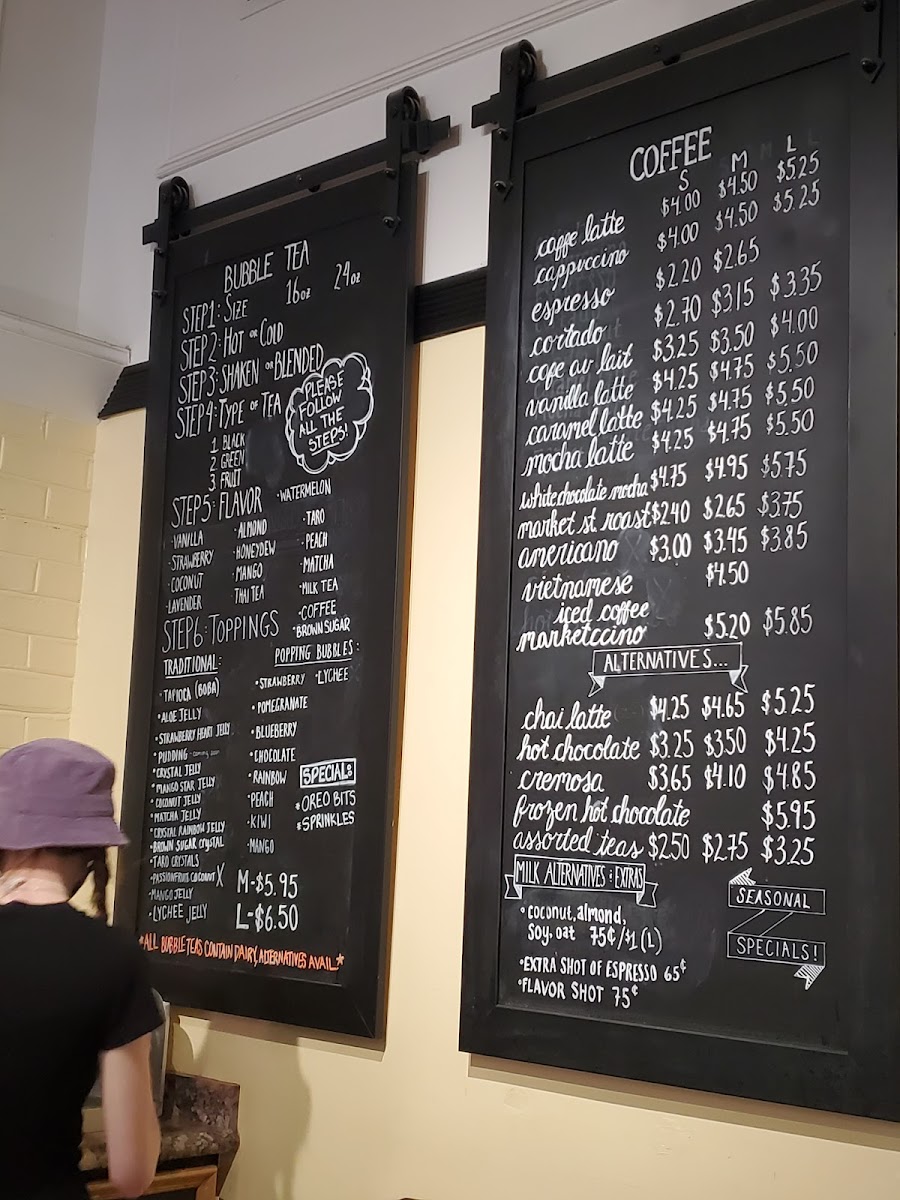 BUBBLE TEA
STEP 1: SIZE 16oz 24oz
STEP 2: HOT OR COLD
STEP 3: SHAKEN OR BLENDED
STEP 4: TYPE OF TEA
1 BLACK
2 GREEN
3 FRUIT
PLEASE
FOLLOW
ALL THE
STEPS!
STEP 5: FLAVOR
• WATERMELON
• VANILLA • ALMOND • TARO
• STRAWBERRY • HONEYDEW • PEACH
• COCONUT • MANGO • MATCHA
• LAVENDER THAI TEA • MILK TEA
• COFFEE
• BROWN SUGAR
STEP 6: TOPPINGS
TRADITIONAL:
• TAPIOCA (BOBA)
• ALOE JELLY
• STRAWBERRY HEART JELLY
• PUDDING
• CRYSTAL JELLY
• MANGO STAR JELLY
• COCONUT JELLY
• MATCHA JELLY
• CRYSTAL RAINBOW JELLY
• BROWN SUGAR CRYSTAL
• TARO CRYSTALS
• PASSIONFRUIT COCONUT X
• MANGO JELLY
• LYCHEE JELLY
POPPING BUBBLES:
• STRAWBERRY • LYCHEE
• POMEGRANATE
• BLUEBERRY
• CHOCOLATE
• RAINBOW
• PEACH
• KIWI
• MANGO
SPECIAL:
• OREO BITS
• SPRINKLES
M-$5.95
L-$6.50
*ALL BUBBLE TEAS CONTAIN DAIRY, ALTERNATIVES AVAIL.*
COFFEE
S M L
caffe latte $4.00 $4.50 $5.25
cappuccino $4.00 $4.50 $5.25
espresso $2.20 $2.65
cortado $2.70 $3.15 $3.35
cafe au lait $3.25 $3.50 $4.00
vanilla latte $4.25 $4.75 $5.50
caramel latte $4.25 $4.75 $5.50
mocha latte $4.25 $4.75 $5.50
white chocolate mocha $4.75 $4.95 $5.75
market st roast $2.40 $2.65 $3.75
americano $3.00 $3.45 $3.85
vietnamese $4.50
iced coffee
marketccino $5.20 $5.85
ALTERNATIVES...
chai latte $4.25 $4.65 $5.25
hot chocolate $3.25 $3.50 $4.25
cremosa $3.65 $4.10 $4.85
frozen hot chocolate $5.95
assorted teas $2.50 $2.75 $3.25
MILK ALTERNATIVES : EXTRAS
• coconut, almond,
soy, oat 75¢/$1 (L)
• EXTRA SHOT OF ESPRESSO 65¢
• FLAVOR SHOT 75¢
SEASONAL
SPECIALS!